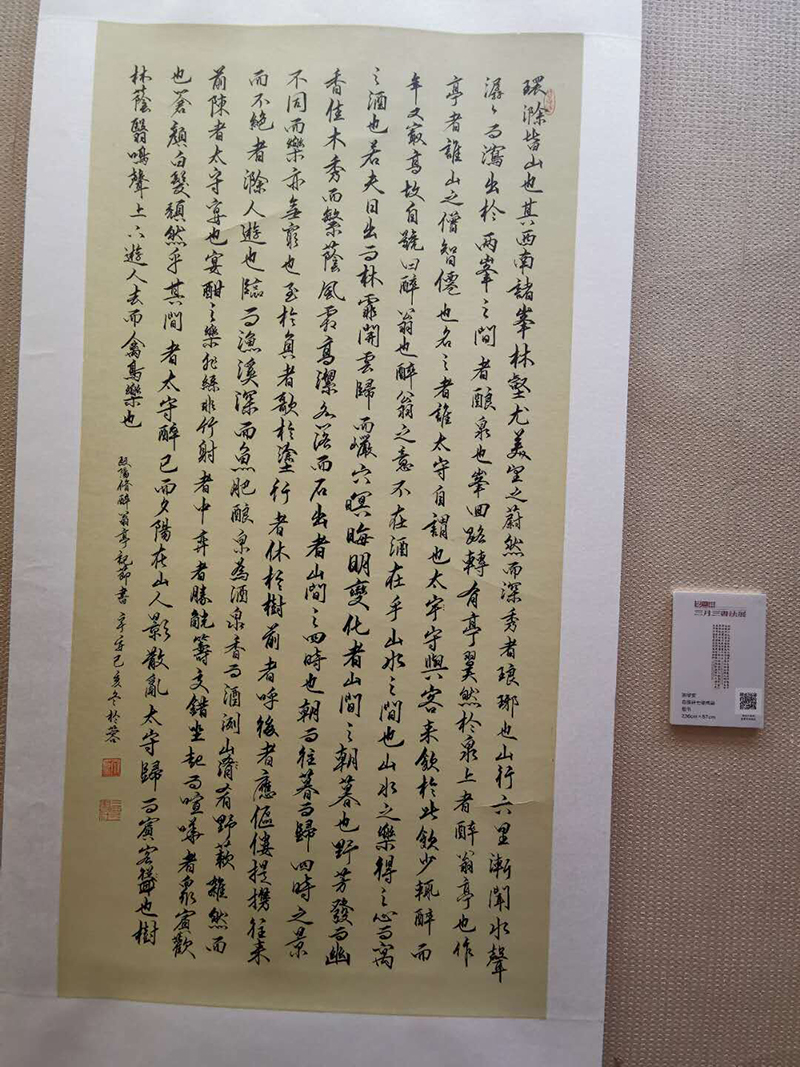 環滁皆山也其西南諸峯林壑尤美望之蔚然而深秀者琅琊也山行六里漸聞水聲
潺々而瀉出於兩峯之間者釀泉也峯回路轉有亭翼然於泉上者醉翁亭也作
亭者誰山之僧智僊也名之者誰太守自謂也太守與客来飲於此飲少輒醉而
年又最高故自號曰醉翁也醉翁之意不在酒在乎山水之間也山水之樂得之心而寓
之酒也若夫日出而林霏開雲歸而巖穴暝晦明變化者山間之朝暮也野芳發而幽
香佳木秀而繁蔭風霜高潔水落而石出者山間之四時也朝而往暮而歸四時之景
不同而樂亦無窮也至於負者歌於塗行者休於樹前者呼後者應傴僂提攜往来
而不絶者滁人遊也臨而漁溪深而魚肥釀泉為酒泉香而酒洌山肴野蔌雜然而
前陳者太守宴也宴酣之樂非絲非竹射者中弈者勝觥籌交錯坐起而喧嘩者衆賓歡
也蒼顔白髮頹然乎其間者太守醉已而夕陽在山人影散亂太守歸而賓客從也樹
林蔭翳鳴聲上下遊人去而禽鳥樂也
歐陽修醉翁亭記節書 己亥冬於蓉
三月三書法展
136cm×67cm